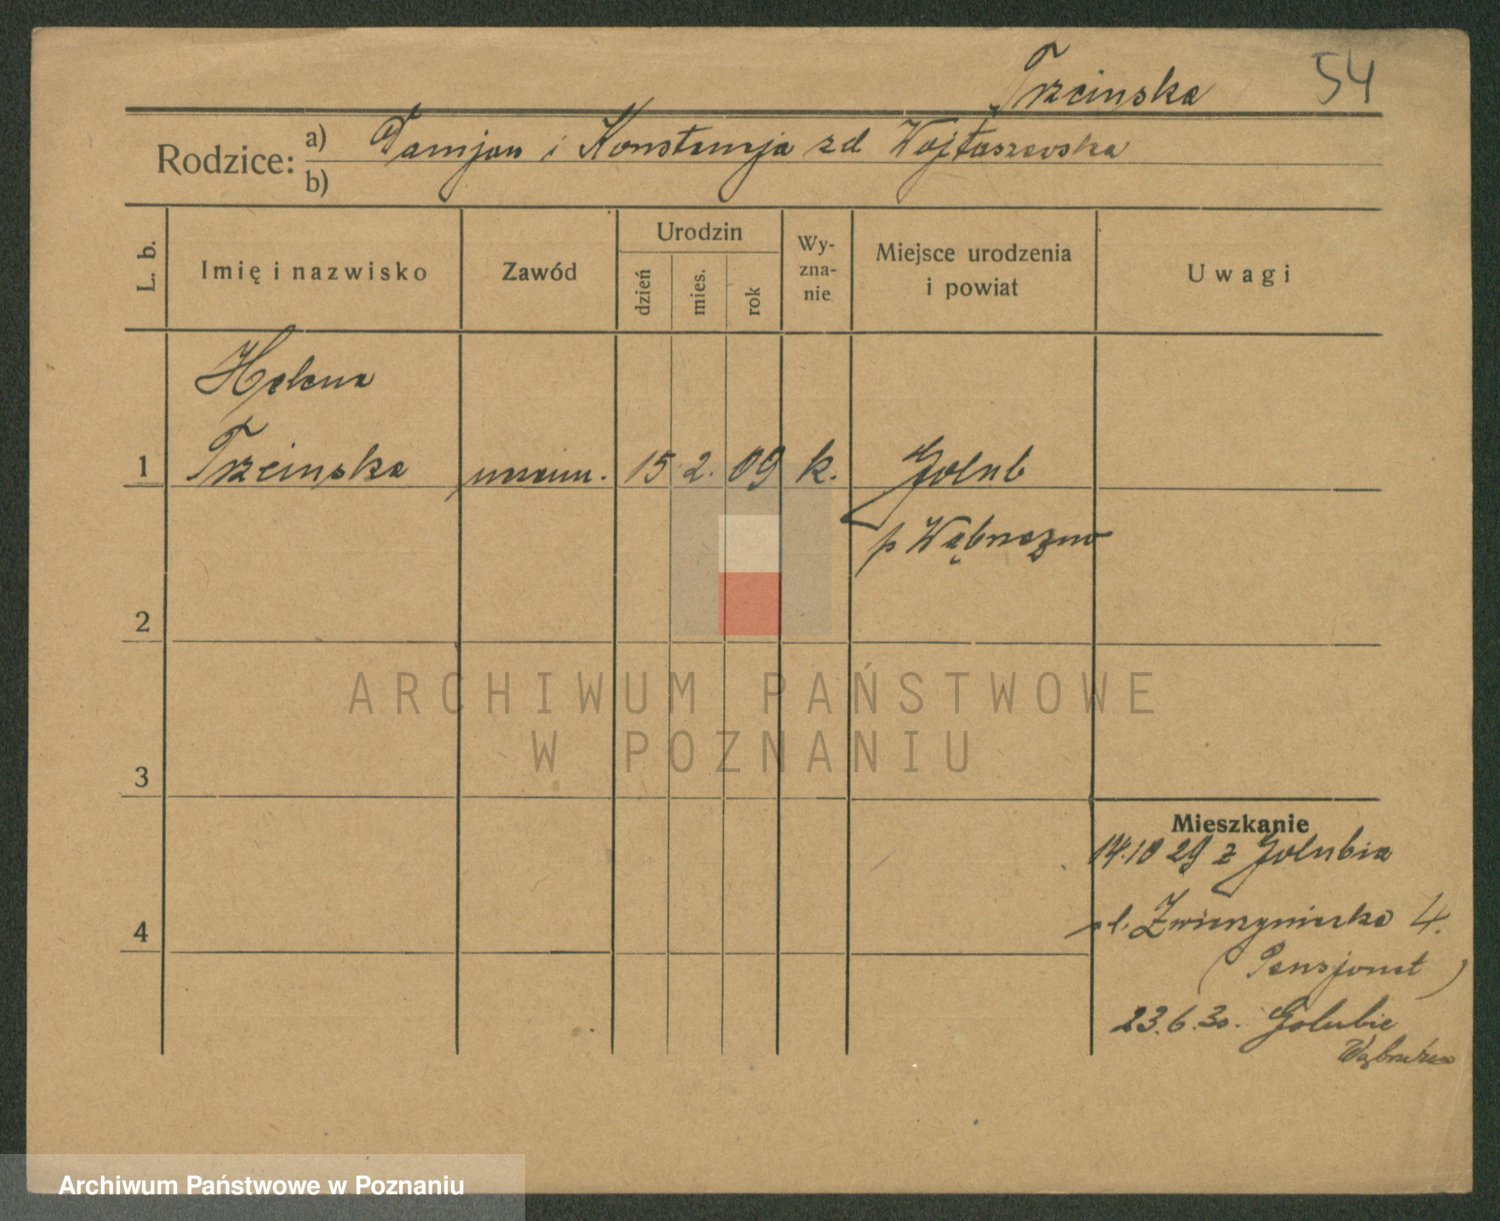 Trzcinska 54
Rodzice: a) Damjan i Konstancja zd Wojtaszewska
b)
L. b. Imię i nazwisko Zawód Urodzin dzień mies. rok Wy-zna-nie Miejsce urodzenia i powiat Uwagi
Helena
1 Trzcinska uczenn. 15 2. 09 k. Golub
p Wąbrzezno
2
ARCHIWUM PAŃSTWOWE
W POZNANIU
3
Mieszkanie
14.10 29 z Golubia
4 ul. Zwierzyniecka 4.
(Pensjonat)
23.6.30. Golubie
Wąbrzeźno
Archiwum Państwowe w Poznaniu